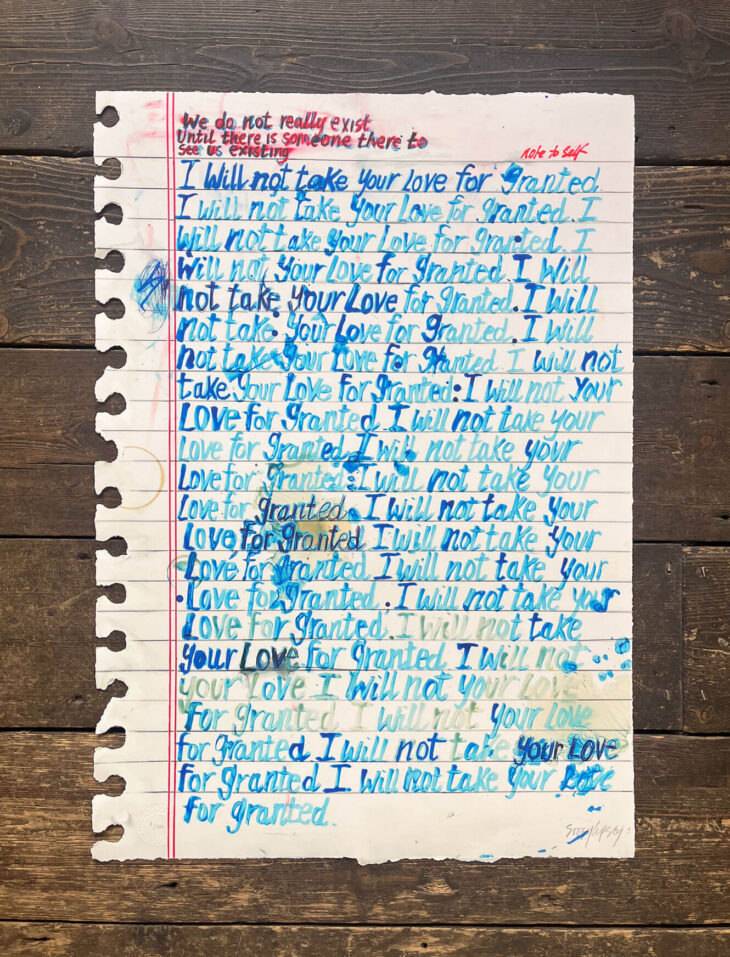 We do not really exist
Until there is someone there to
see us existing
note to self
I Will not take your Love for Granted.
I will not take your Love for granted. I
will not take your Love for granted. I
will not your Love for granted. I Will
not take your Love for granted. I Will
not take your Love for granted. I will
not take your Love for granted. I will not
take your Love for granted. I will not your
Love for granted. I will not take your
Love for granted. I will not take your
Love for granted. I will not take your
Love for granted. I will not take your
Love for granted I will not take your
Love for granted I will not take your
Love for granted. I will not take your
Love for granted. I will not take
your Love for granted. I will not
your Love I will not your Love
for granted I will not your Love
for granted I will not take your Love
for granted I will not take your Love
for granted.